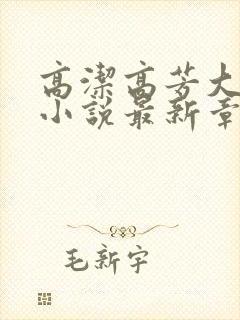 高潔高芳大
小說最新章
毛新宇